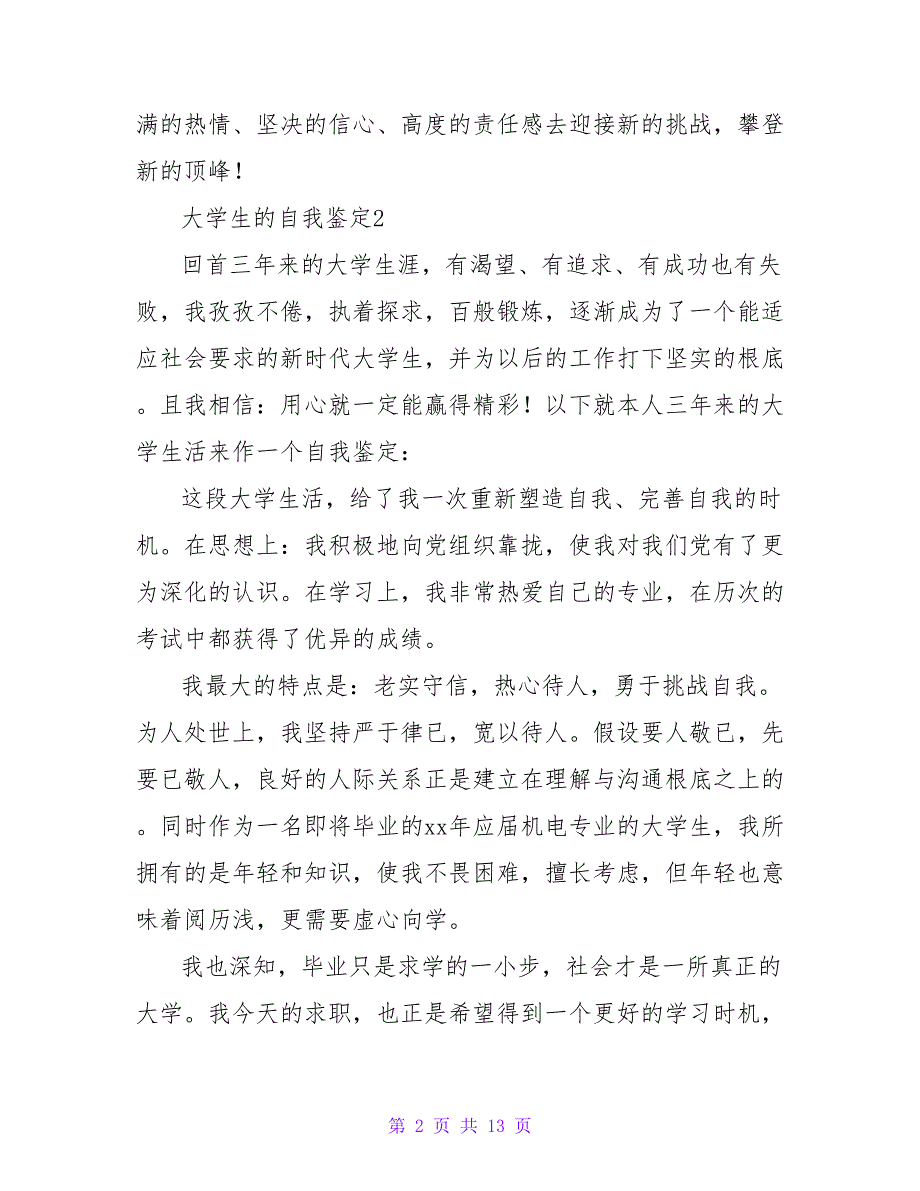 满的热情、坚决的信心、高度的责任感去迎接新的挑战，攀登
新的顶峰！
大学生的自我鉴定2
回首三年来的大学生涯，有渴望、有追求、有成功也有失
败，我孜孜不倦，执着探求，百般锻炼，逐渐成为了一个能适
应社会要求的新时代大学生，并为以后的工作打下坚实的根底
。且我相信：用心就一定能赢得精彩！以下就本人三年来的大
学生活来作一个自我鉴定：
这段大学生活，给了我一次重新塑造自我、完善自我的时
机。在思想上：我积极地向党组织靠拢，使我对我们党有了更
为深化的认识。在学习上，我非常热爱自己的专业，在历次的
考试中都获得了优异的成绩。
我最大的特点是：老实守信，热心待人，勇于挑战自我。
为人处世上，我坚持严于律已，宽以待人。假设要人敬已，先
要已敬人，良好的人际关系正是建立在理解与沟通根底之上的
。同时作为一名即将毕业的xx年应届机电专业的大学生，我所
拥有的是年轻和知识，使我不畏困难，擅长考虑，但年轻也意
味着阅历浅，更需要虚心向学。
我也深知，毕业只是求学的一小步，社会才是一所真正的
大学。我今天的求职，也正是希望得到一个更好的学习时机，
第 2 页 共 13 页